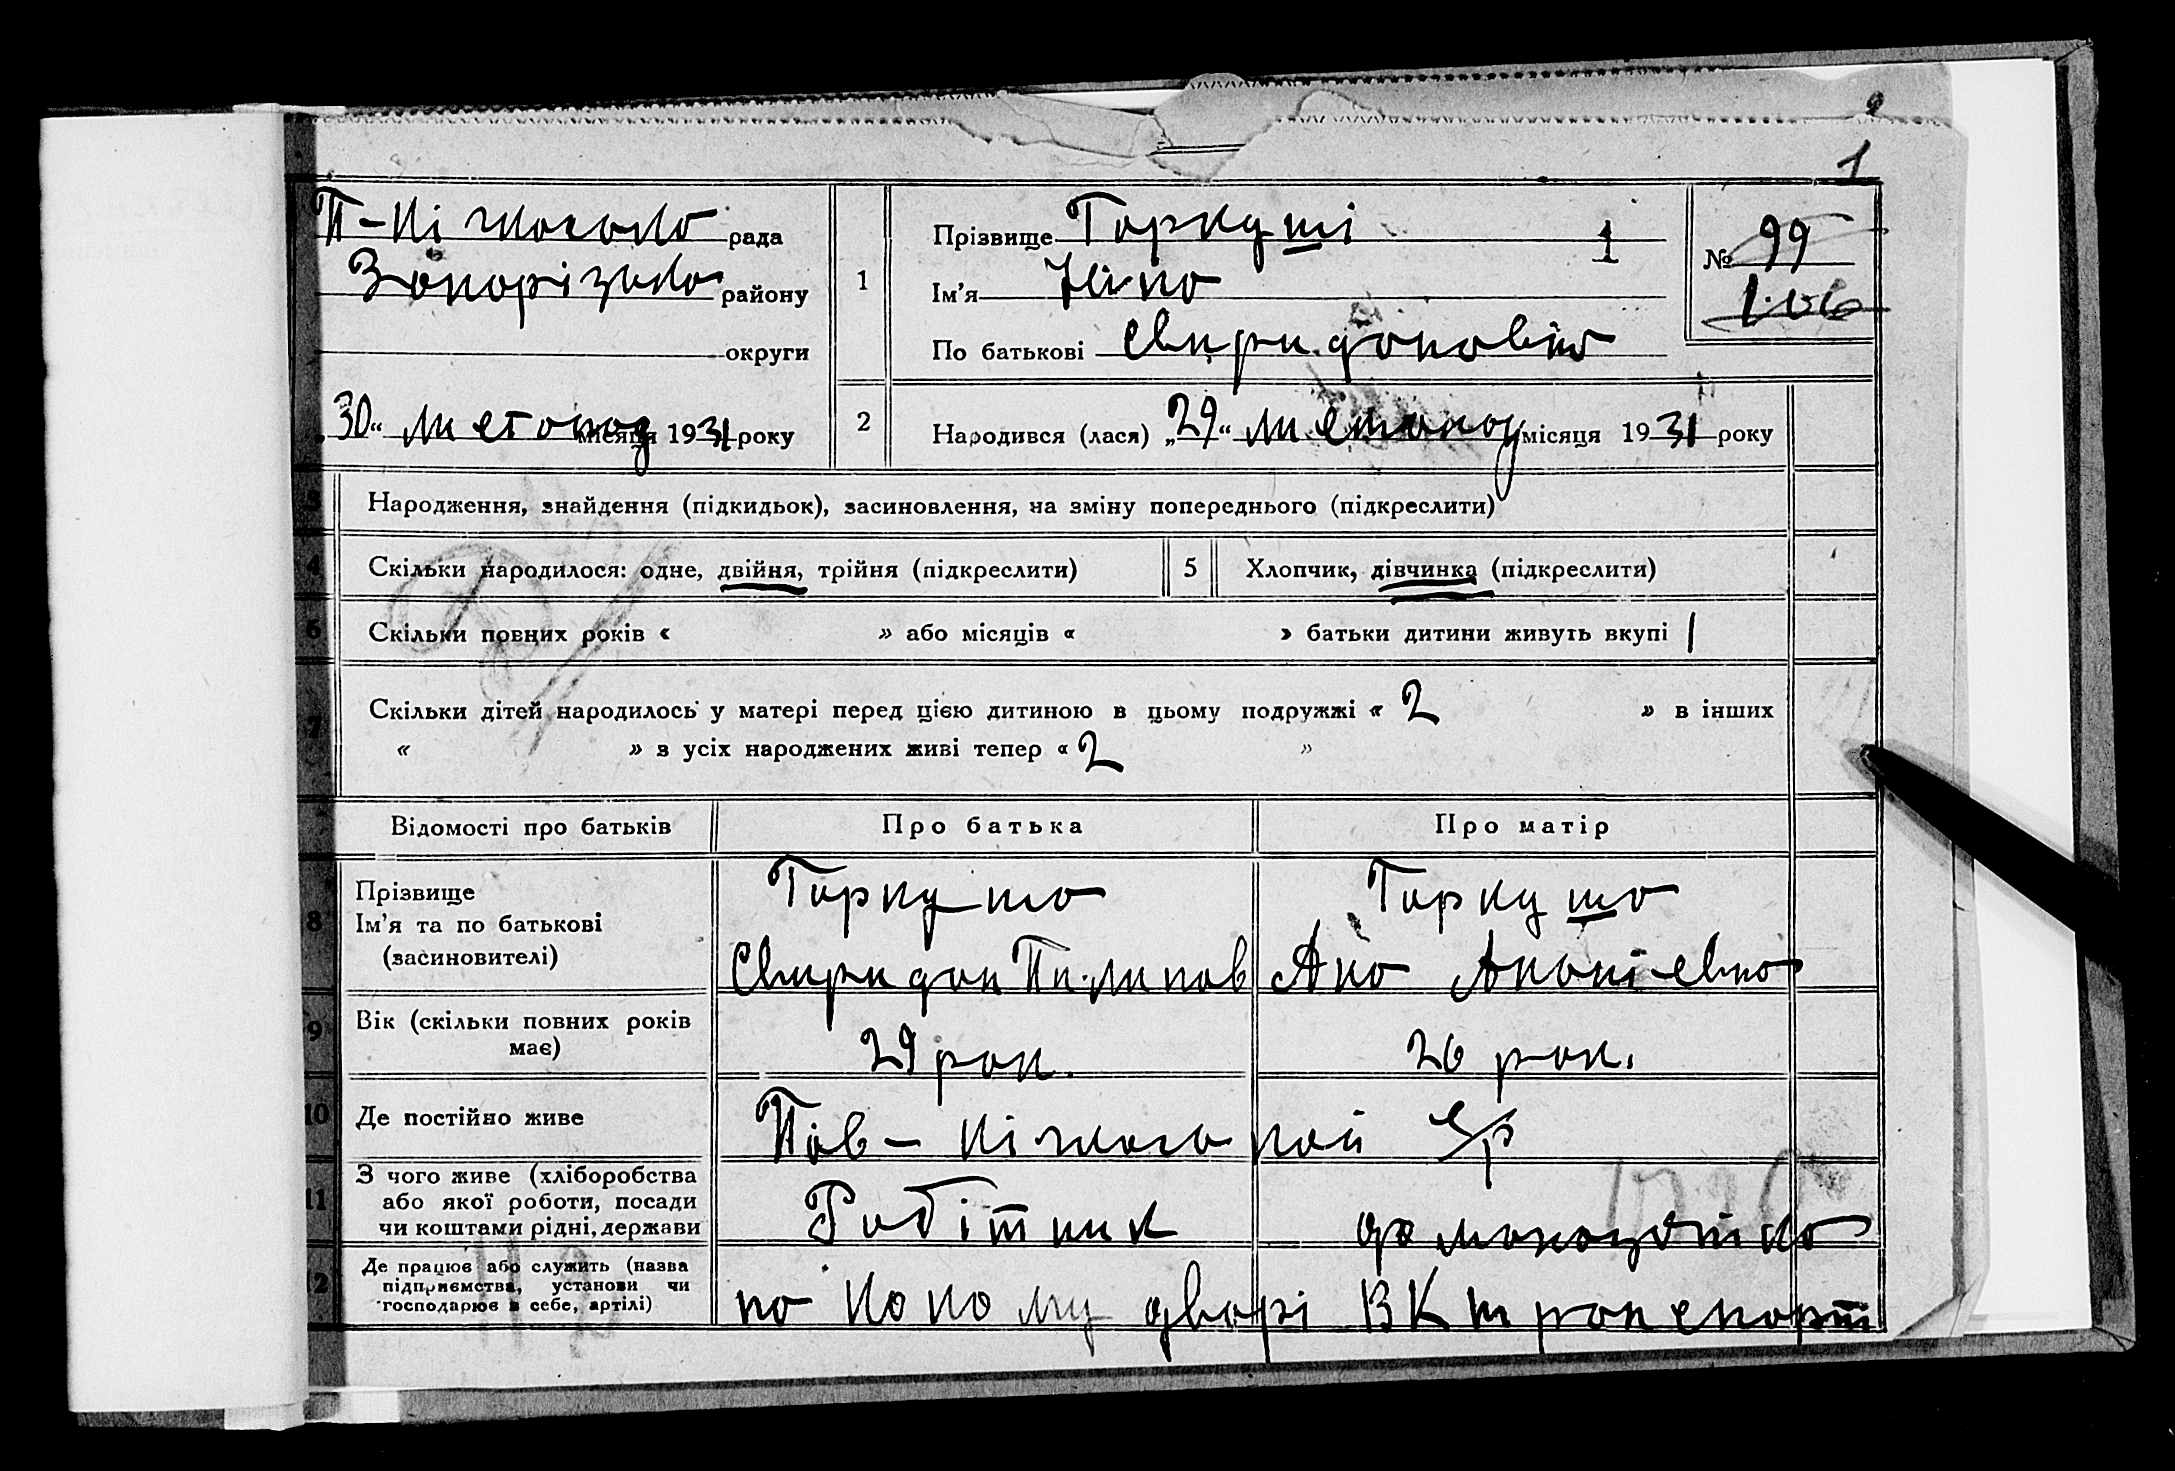 1
П-Кічкаська рада
Запорізька району
округи
„30“ листопад місяця 1931 року
1
Прізвище Таркуші 1
Ім'я Ніна
По батькові Свиридоновна
№ 99
106
2
Народився (лася) „29“ листопад місяця 1931 року
3 Народження, знайдення (підкидьок), засиновлення, на зміну попереднього (підкреслити)
4 Скільки народилося: одне, двійня, трійня (підкреслити) 5 Хлопчик, дівчинка (підкреслити)
6 Скільки повних років « » або місяців « » батьки дитини живуть вкупі
7 Скільки дітей народилось у матері перед цією дитиною в цьому подружжі « 2 » в інших
« » з усіх народжених живі тепер « 2 »
Відомості про батьків Про батька Про матір
8 Прізвище
Ім'я та по батькові
(засиновителі)
Таркуша
Свиридон Пилипов
Таркуша
Ана Ананієвна
9 Вік (скільки повних років
має)
29 рок. 26 рок.
10 Де постійно живе Пав-Кічкас
11 З чого живе (хліборобства
або якої роботи, посади
чи коштами рідні, держави
Робітник домохазяйка
12 Де працює або служить (назва
підприємства, установи чи
господарює в себе, артілі)
на коному дворі ВК транспорті